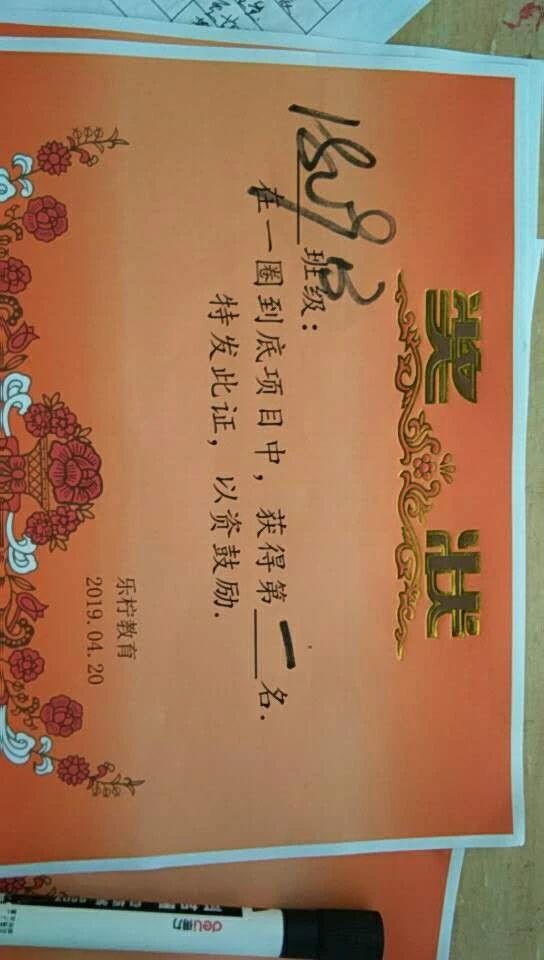 奖状
班级:
在一圈到底项目中,获得第一名.
特发此证,以资鼓励.
乐柠教育
2019.04.20
deli得力